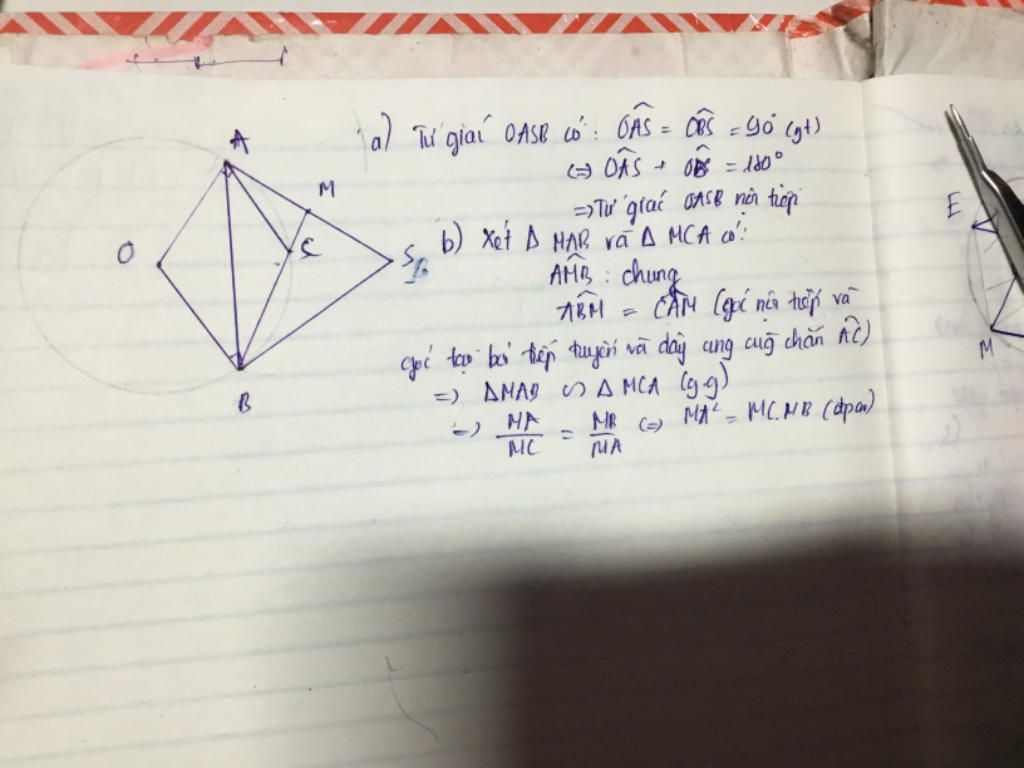 A
M
O
C
S
B
a) Tứ giác OASB có: OÂS = OB̂S = 90° (gt)
(=) OÂS + OB̂S = 180°
=> Tứ giác OASB nội tiếp
b) Xét Δ MAB và Δ MCA có:
AM̂B : chung
AB̂M = CÂM (góc nội tiếp và
góc tạo bởi tiếp tuyến và dây cung cùg chắn AC)
=> ΔMAB ∽ Δ MCA (g.g)
=> MA/MC = MB/MA (=) MA² = MC.MB (đpcm)
E
M